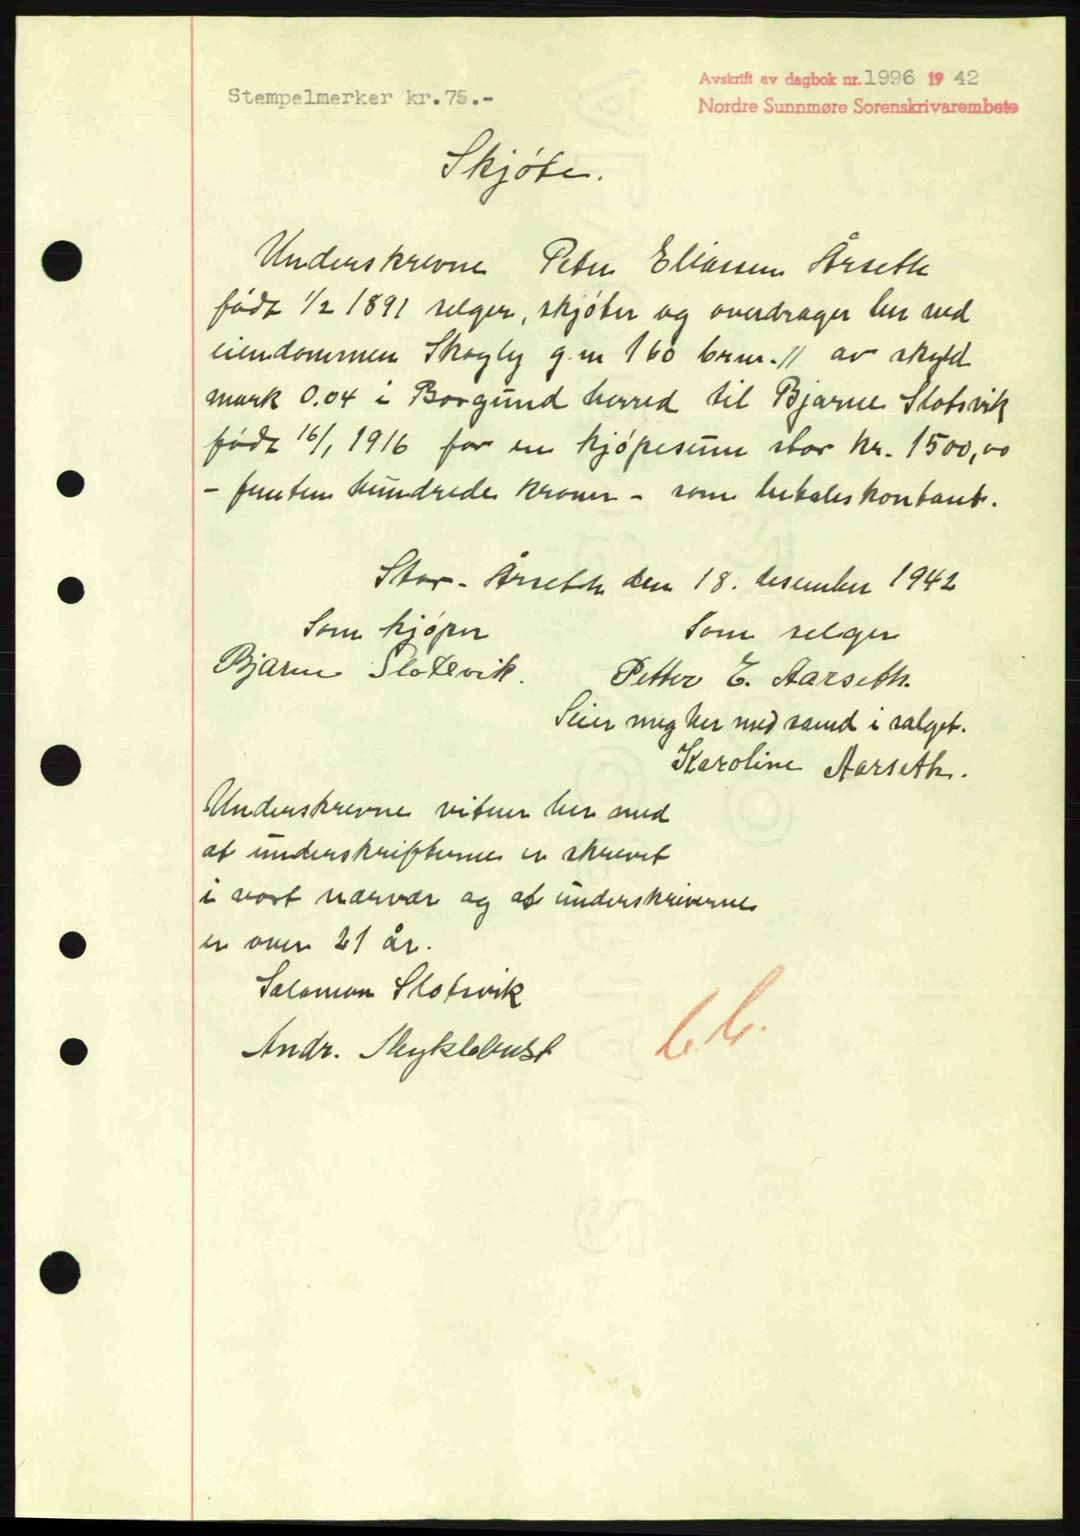 Stempelmerker kr.75.-
Avskrift av dagbok nr. 1996 19 42
Nordre Sunnmøre Sorenskrivarembete
Skjøte.
Underskrevne Peter Eliassen Årseth
født 1/2 1891 selger, skjøter og overdrager her ved
eiendommen Skogly g.nr 160 brnr. 11 av skyld
mark 0.04 i Borgund herred til Bjarne Slotsvik
født 16/1 1916 for en kjøpesum stor kr. 1500,00
- femten hundrede kroner - som betales kontant.
Stor-Årseth den 18. desember 1942
Som kjøper Som selger
Bjarne Slotsvik. Petter E. Aarseth.
Seier meg her med samd i salget.
Karoline Aarseth.
Underskrevne vitner her med
at underskrifterne er skrevet
i vort nærvær og at underskriverne
er over 21 år.
Salomon Slotsvik
Andr. Myklebust